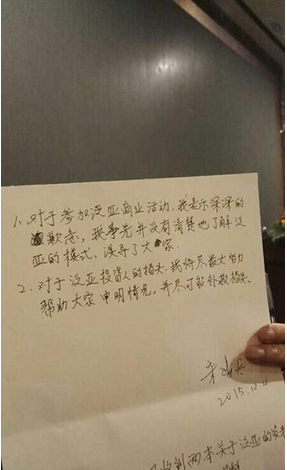 1. 对于参加泛亚商业活动,我表示深深的
歉意,我事先并没有清楚地了解泛
亚的模式,误导了大家.
2. 对于泛亚投资人的损失,我将尽最大努力
帮助大家申明情况,并尽可能补救损失.
2015.12.
收到两本关于泛亚的资料